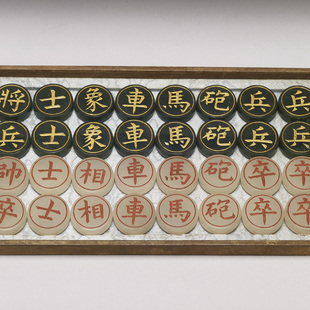 將士象車馬砲兵兵
兵士象車馬砲兵兵
帥士相車馬砲卒卒
卒士相車馬砲卒卒